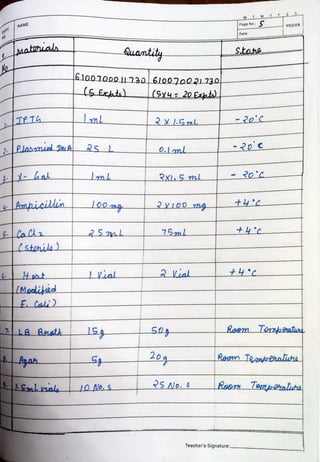 M T W T F S S
NAME
Page No.: 5
YOUVA
Date:
EXPT. NO
S. No Materials Quantity Store
6100700011730 6100700021730
(5 Expts) (5x4 = 20 Expts)
1. IPTG 1 mL 2 X 1.5 mL - 20°C
2. Plasmid DNA 25 L 0.1 ml - 20°C
3. X- Gal 1mL 2X1.5 mL - 20°C
4. Ampicillin 100 mg 2 x 100 mg +4°C
5. CaCl2 25 mL 75mL +4°C
(Sterile)
6. Host 1 Vial 2 Vial +4°C
(Modified
E. Coli)
7. LB Broth 15g 50g Room Temperature
8. Agar 5g 20g Room Temperature
9. 1.5ml vials 10 No. s 25 No. s Room Temperature
Teacher's Signature: